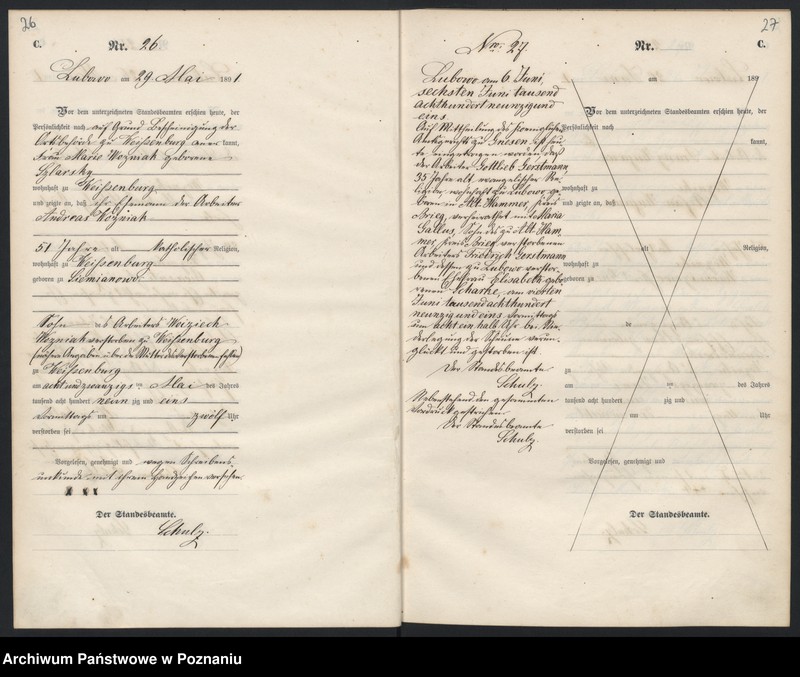 26
C.
Nr. 26
Lubowo am 29 Mai 1891.
Vor dem unterzeichneten Standesbeamten erschien heute, der
Persönlichkeit nach auf Grund Bescheinigung der
Ortsbehörde zu Weissenburg anerkannt,
Frau Marie Wozniak geborene
wohnhaft zu Weissenburg
und zeigte an, daß ihr Ehemann der Arbeiter
Andreas Wozniak
51 Jahre alt Katholischer Religion,
wohnhaft zu Weissenburg
geboren zu Siemianowo
Sohn des Arbeiters Woiziech
Wozniak verstorben zu Weissenburg
zu Weissenburg
am acht und zwanzigsten Mai des Jahres
tausend acht hundert neun zig und eins
Vormittags um zwölf Uhr
verstorben sei
Vorgelesen, genehmigt und wegen Schreibens-
unkunde mit ihrem Handzeichen versehen.
X X X
Der Standesbeamte.
Schulz.
27
Nro. 27.
Lubowo am 6 Juni,
sechsten Juni tausend
achthundert neunzig und
eins
Auf Mittheilung des Koeniglichen
Amtsgerichts zu Gnesen ist heu-
te eingetragen worden daß
der Arbeiter Gottlieb Gerstmann,
35 Jahre alt, evangelischer Re-
ligion, wohnhaft zu Lubowo, ge-
boren in Alt Hammer, Kreis
Brieg, verheirathet mit Maria
Gallus, Sohn des zu Alt Ham-
mer, Kreis Brieg verstorbenen
Arbeiters Friedrich Gerstmann
und dessen zu Lubowo verstor-
benen Ehefrau Elisabeth gebo-
renen Scharke, am vierten
Juni tausend achthundert
neunzig und eins Vormittags
um acht ein halb Uhr bei Nie-
derlegung der Scheune verun-
glückt und gestorben ist.
Der Standesbeamte
Schulz.
Nebenstehend den gesammten
Vordruck gestrichen
Der Standesbeamte
Schulz.
Nr.
C.
am 189
Vor dem unterzeichneten Standesbeamten erschien heute, der
Persönlichkeit nach
kannt,
wohnhaft zu
und zeigte an, daß
alt Religion,
wohnhaft zu
geboren zu
de
zu
am ten des Jahres
tausend acht hundert zig und
um Uhr
verstorben sei
Vorgelesen, genehmigt und
Der Standesbeamte.
Archiwum Państwowe w Poznaniu